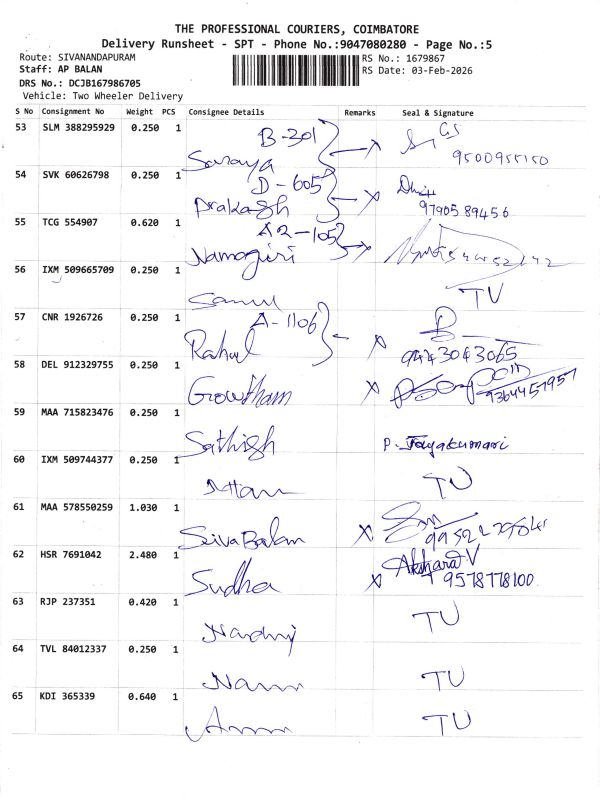 THE PROFESSIONAL COURIERS, COIMBATORE
Delivery Runsheet - SPT - Phone No.:9047080280 - Page No.:5
Route: SIVANANDAPURAM
RS No.: 1679867
Staff: AP BALAN
RS Date: 03-Feb-2026
DRS No.: DCJB167986705
Vehicle: Two Wheeler Delivery
S No Consignment No Weight PCS Consignee Details Remarks Seal & Signature
53 SLM 388295929 0.250 1 B-301
Saraya 9500955150
54 SVK 60626798 0.250 1 D-605
Prakash 9790589456
55 TCG 554907 0.620 1 A2-105
Namagiri
56 IXM 509665709 0.250 1
TU
57 CNR 1926726 0.250 1 A-1106
Rahul 9443043065
58 DEL 912329755 0.250 1
Growtham 9364457957
59 MAA 715823476 0.250 1
Sathish P. Jayakumari
60 IXM 509744377 0.250 1
TU
61 MAA 578550259 1.030 1
SeivaBalan
62 HSR 7691042 2.480 1 Akshara V
Sudha 9578778100
63 RJP 237351 0.420 1 TU
64 TVL 84012337 0.250 1
TU
65 KDI 365339 0.640 1
TU